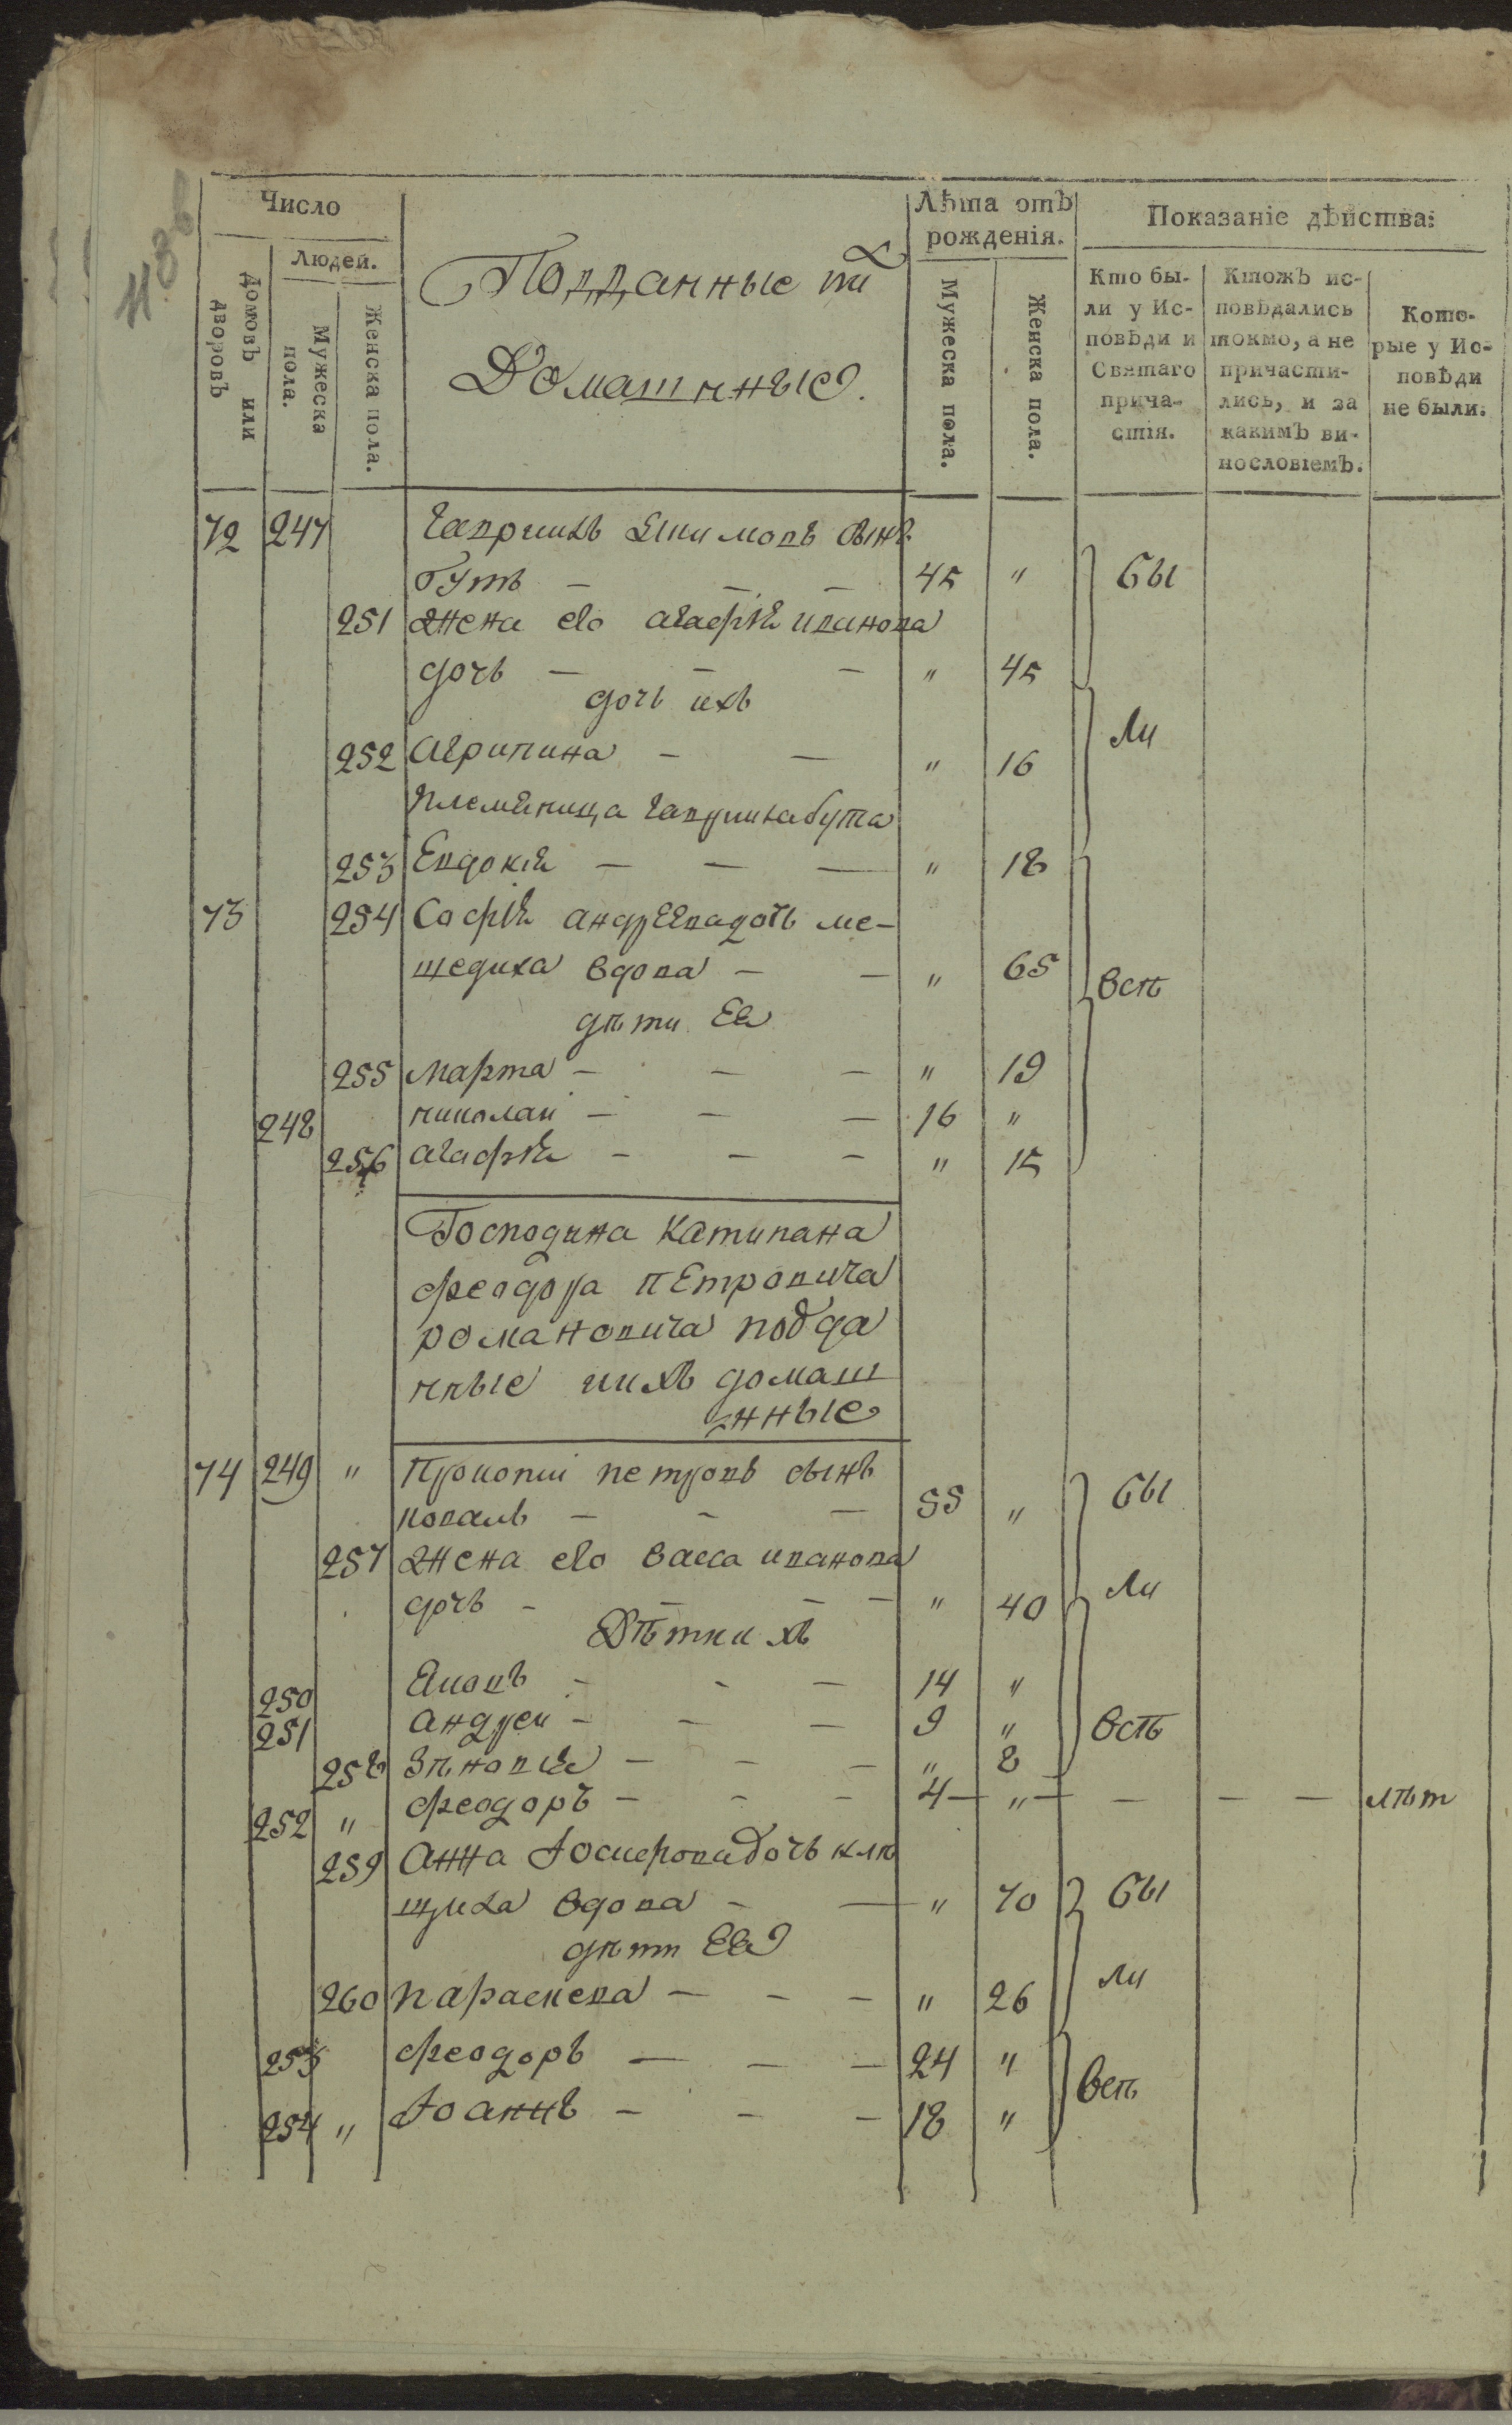 Число
Людей.
Домовъ или дворовъ
Мужеска пола.
Женска пола.
Подданные их
Домашнные.
Лѣта отъ рожденія.
Мужеска пола.
Женска пола.
Показаніе дѣйства:
Кто бы-
ли у Ис-
повѣди и
Святаго
прича-
стія.
Ктожъ ис-
повѣдались
токмо, а не
причасти-
лись, и за
какимъ ви-
нословіемъ.
Кото-
рые у Ис-
повѣди
не были.
72 247 Гавриилъ Якимовъ сынъ
Бутъ — — — 45 " бы
251 Жена его агафія иванова
дочь — — — " 45
дочь ихъ
ли
252 Агрипина — — " 16
племяница гавриила бута
253 Евдокія — — — " 18
73 254 Софія андреева дочь ме-
щедиха вдова — — " 65 всѣ
дѣти Ея
255 марта — — — " 19
248 николаи — — — 16 "
256 агафія — — — " 15
Господина Капитана
феодора пЕтровича
романовича подда
нные иихъ домаш
нные
74 249 " Прокопіи петровъ сынъ
ковалъ — — — 55 " бы
257 Жена его васса иванова
дочь — — — " 40 ли
Дѣтки хъ
250 Яковъ — — — 14 "
251 андреи — — — 9 " всѣ
258 Зѣновия — — — " 8
252 " феодоръ — — — 4 — " — — — — лѣт
259 Анна Іосифова дочь клѣ
щиха вдова — — " 70 бы
дѣти Ея
260 параскева — — — " 26 ли
253 феодоръ — — — 24 "
всѣ
254 " Іоаннъ — — — 18 "